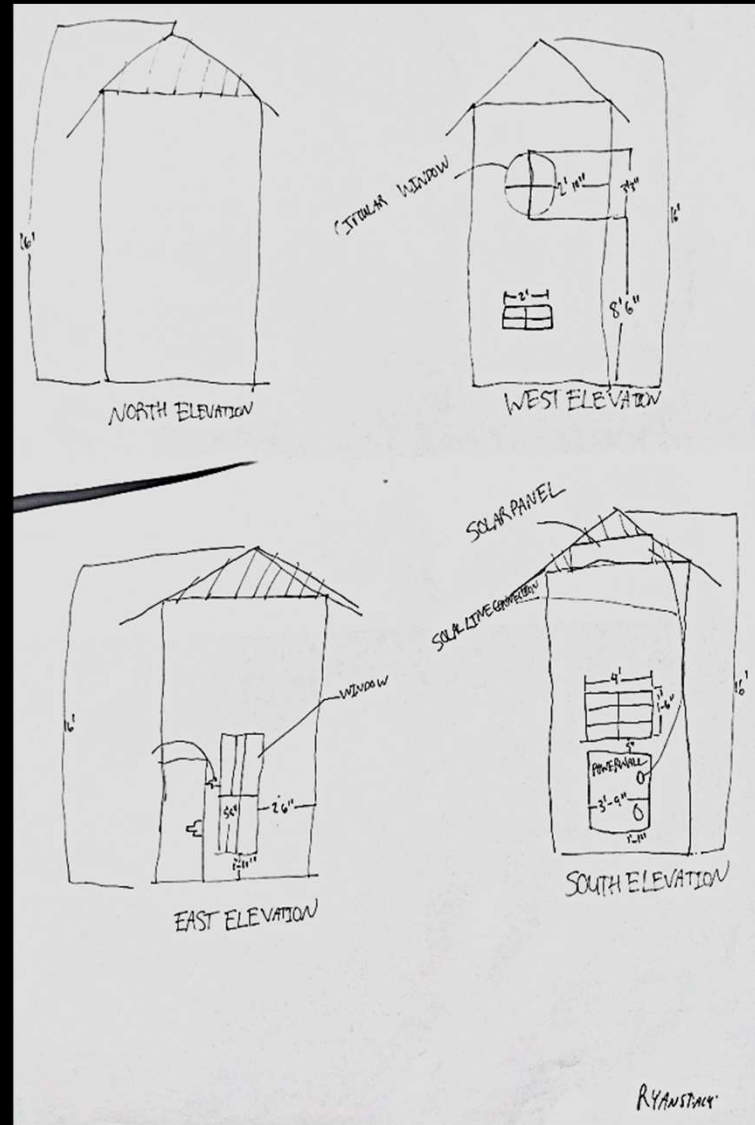 16'
NORTH ELEVATION
CIRCULAR WINDOW
2' 10"
16'
2'
8'6"
WEST ELEVATION
16'
WINDOW
2'6"
1'-11"
EAST ELEVATION
SOLAR PANEL
SOLAR LINE CONNECTION
4'
1'-6"
16'
5"
POWERWALL
3'-9"
1'-11"
SOUTH ELEVATION